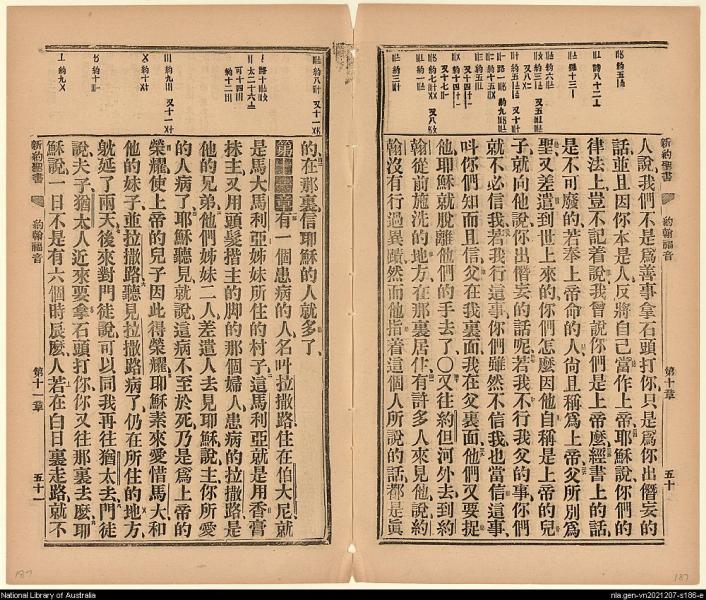 新約聖書
約翰福音
第十章
五十
人說、我們不是爲善事拿石頭打你、只是爲你出僭妄的
話、並且因你本是人、反將自己當作上帝、耶穌說、你們的
律法上豈不記着說、我曾說你們是上帝麽、經書上的話、
是不可廢的、若奉上帝命的人、尙且稱爲上帝、父所別爲
聖、又差遣到世上來的、你們怎麽因他自稱是上帝的兒
子、就向他說、你出僭妄的話呢、若我不行我父的事、你們
就不必信我、若我行這事、你們雖然不信我、也當信這事、
叫你們知而且信父在我裏面、我在父裏面、他們又要捉
他、耶穌就脫離他們的手去了〇又往約但河外去、到約
翰從前施洗的地方、在那裏居住、有許多人來見他、說、約
翰沒有行過異蹟、然而他指着這個人所說的話、都是眞
的、在那裏信耶穌的人就多了、
有一個患病的人、名叫拉撒路、住在伯大尼、就
是馬大馬利亞姊妹所住的村子、這馬利亞就是用香膏
抹主、又用頭髮揩主的脚的那個婦人、患病的拉撒路是
他的兄弟、他們姊妹二人差遣人去見耶穌、說、主、你所愛
的人病了、耶穌聽見就說、這病不至於死、乃是爲上帝的
榮耀、使上帝的兒子因此得榮耀、耶穌素來愛惜馬大和
他的妹子、並拉撒路、聽見拉撒路病了、仍在所住的地方、
躭延了兩天、後來對門徒說、可以同我再往猶太去、門徒
說、夫子、猶太人近來要拿石頭打你、你又往那裏去麽、耶
穌說、一日不是有六個時辰麽、人若在白日裏走路、就不
新約聖書
約翰福音
第十一章
五十一
187
National Library of Australia
nla.gen-vn2021207-s186-e